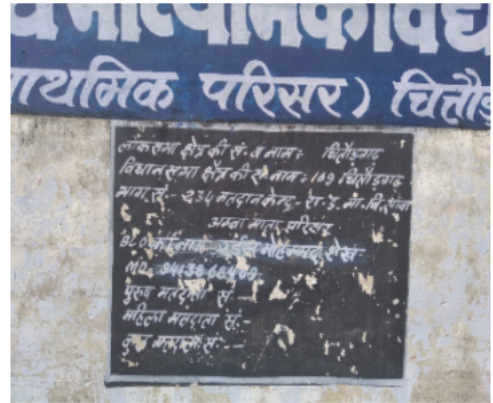 प्राथमिक परिसर) चित्तौड़
लोकसभा क्षेत्र की सं. व नाम: चित्तौड़गढ़
विधानसभा क्षेत्र की सं. नाम: 169 चित्तौड़गढ़
भाग सं:- 234 मतदान केन्द्र- रा. उ. मा. वि.
अम्बा माता परिसर
BLO का नाम मोहम्मद शेख
MO.
पुरुष मतदाता सं:-
महिला मतदाता सं:-
कुल मतदाता सं:-